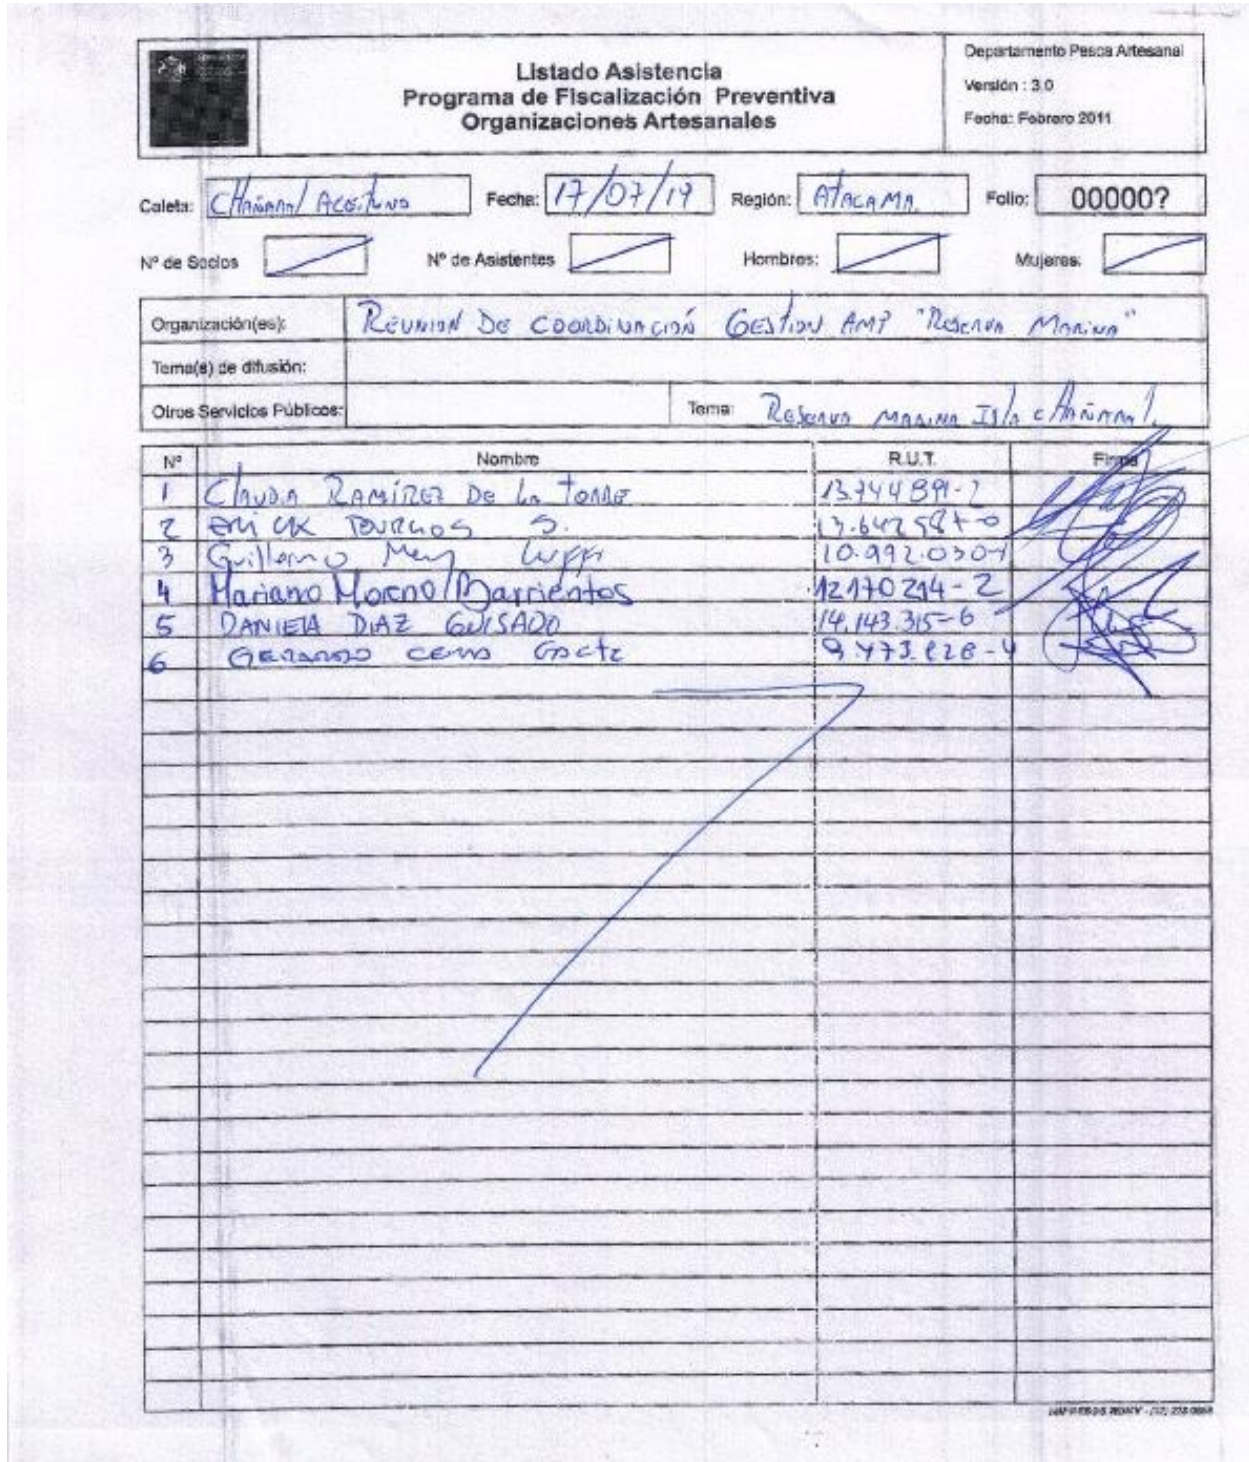 Listado Asistencia
Programa de Fiscalización Preventiva
Organizaciones Artesanales
Departamento Pesca Artesanal
Versión : 3.0
Fecha: Febrero 2011
Caleta: CHAÑARAl ACEITUNO Fecha: 17/07/19 Región: ATACAMA. Folio: 00000?
Nº de Socios Nº de Asistentes Hombres: Mujeres:
Organización(es): REUNION DE COORDINACIÓN GESTION AMP "RESERVA MARINA"
Tema(s) de difusión:
Otros Servicios Públicos: Tema: RESERVA MARINA ISlA CHAÑARAl.
Nº Nombre R.U.T. Firma
1 ClAUDIA RAMÍREZ DE LA TORRE
2 ERICK BURGOS S.
3 Guillermo
4 Mariano Moreno Barrientos 12170214-2
5 DANIELA DIAZ GUISADO 14.143.315-6
6 GERARDO CERDA